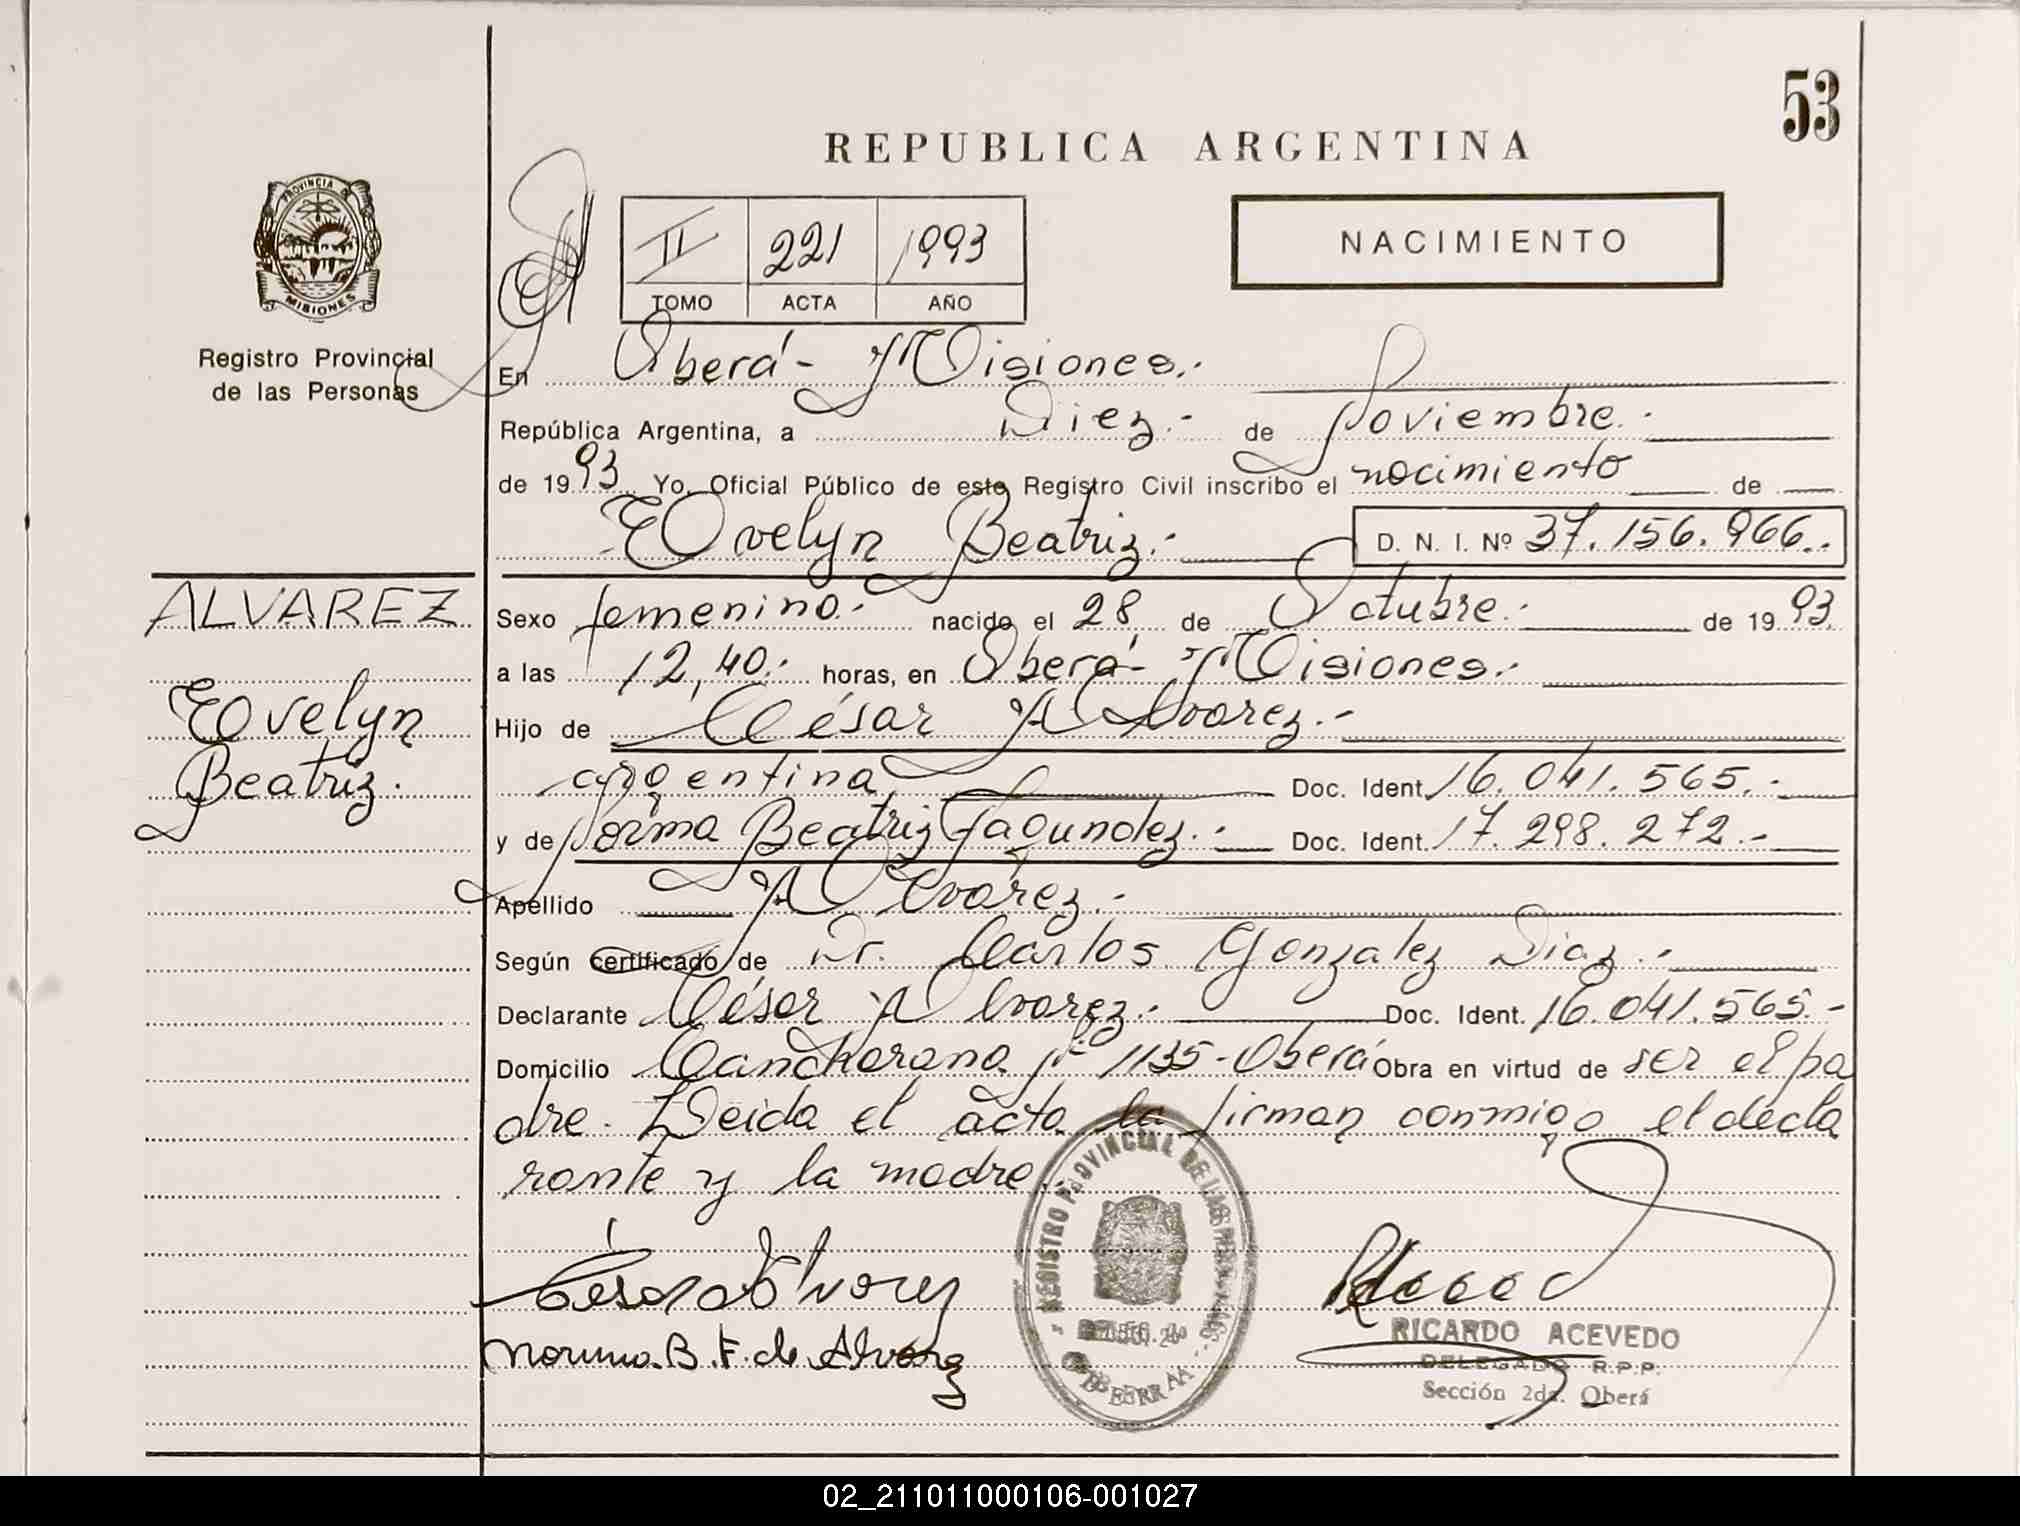 53
REPUBLICA ARGENTINA
PROVINCIA DE
MISIONES
Registro Provincial
de las Personas
II 221 1993
TOMO ACTA AÑO
NACIMIENTO
En Oberá - Misiones.-
República Argentina, a Diez.- de Noviembre.-
de 1993. Yo, Oficial Público de este Registro Civil inscribo el nacimiento de
Evelyn Beatriz.- D. N. I. Nº 37.156.966.-
ALVAREZ
Evelyn
Beatriz.
Sexo femenino.- nacido el 28 de Octubre.- de 1993
a las 12,40.- horas, en Oberá - Misiones.-
Hijo de César Alvarez.-
argentina Doc. Ident. 16.041.565.-
y de Norma Beatriz Fagundez.- Doc. Ident. 17.298.272.-
Apellido Alvarez.-
Según certificado de Dr. Carlos Gonzalez Diaz.-
Declarante César Alvarez.- Doc. Ident. 16.041.565.-
Domicilio Nº 1135 - Oberá Obra en virtud de ser el pa
dre. Leida el acta la firman conmigo el decla
rante y la madre.-
César Alvarez
Norma B. F. de Alvarez
REGISTRO PROVINCIAL DE LAS
RICARDO ACEVEDO
DELEGADO R.P.P.
Sección 2da. Oberá
02_211011000106-001027